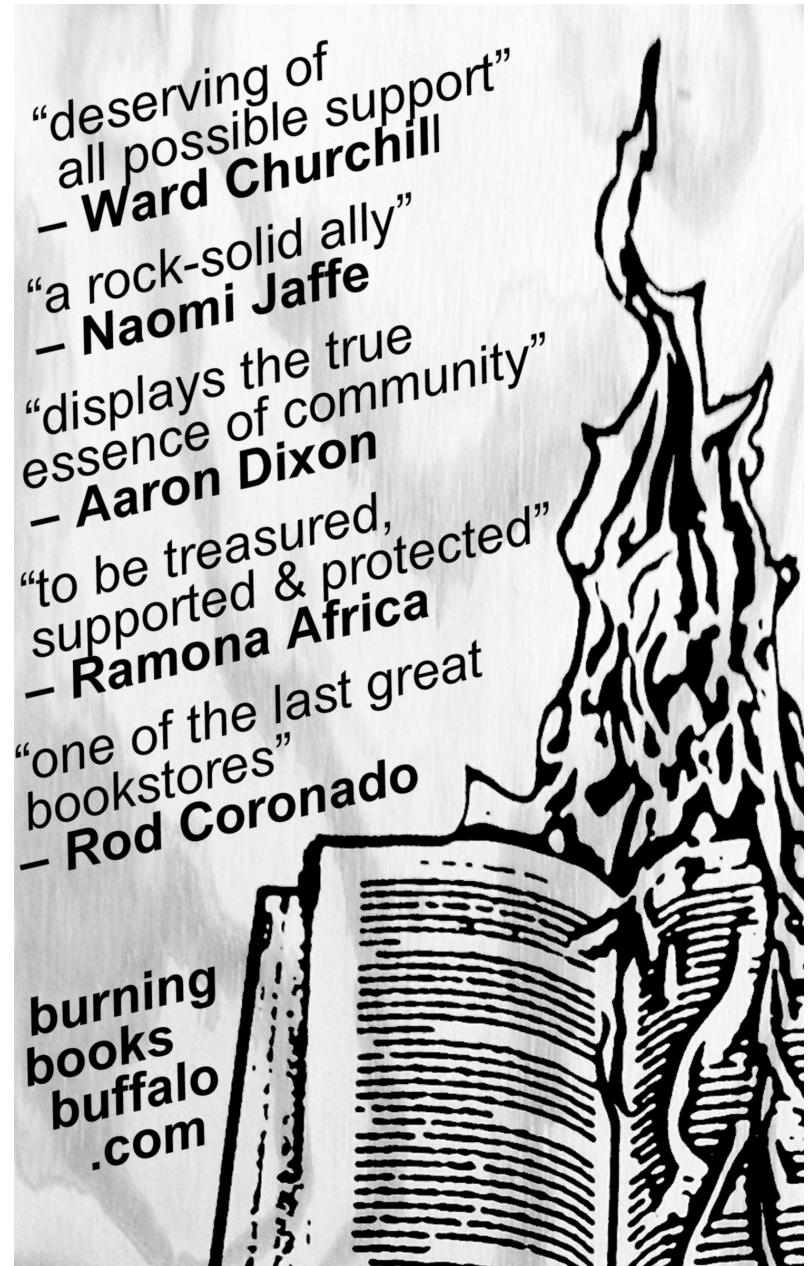 “deserving of
all possible support”
– Ward Churchill
“a rock-solid ally”
– Naomi Jaffe
“displays the true
essence of community”
– Aaron Dixon
“to be treasured,
supported & protected”
– Ramona Africa
“one of the last great
bookstores”
– Rod Coronado
burning
books
buffalo
.com